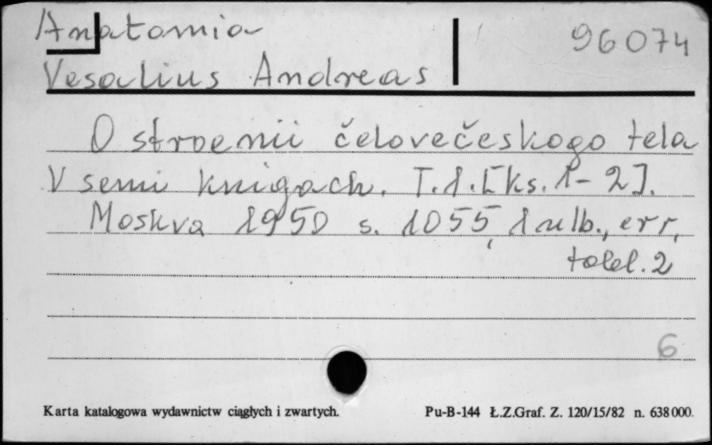 Anatomia
96074
Vesalius Andreas
O stroenii čelovečeskogo tela
V semi knigach. T.1.[ks. 1-2].
Moskva 1950 s. 1055, 1 err,
tabl. 2
6
Karta katalogowa wydawnictw ciągłych i zwartych.
Pu-B-144 Ł.Z.Graf. Z. 120/15/82 n. 638000.